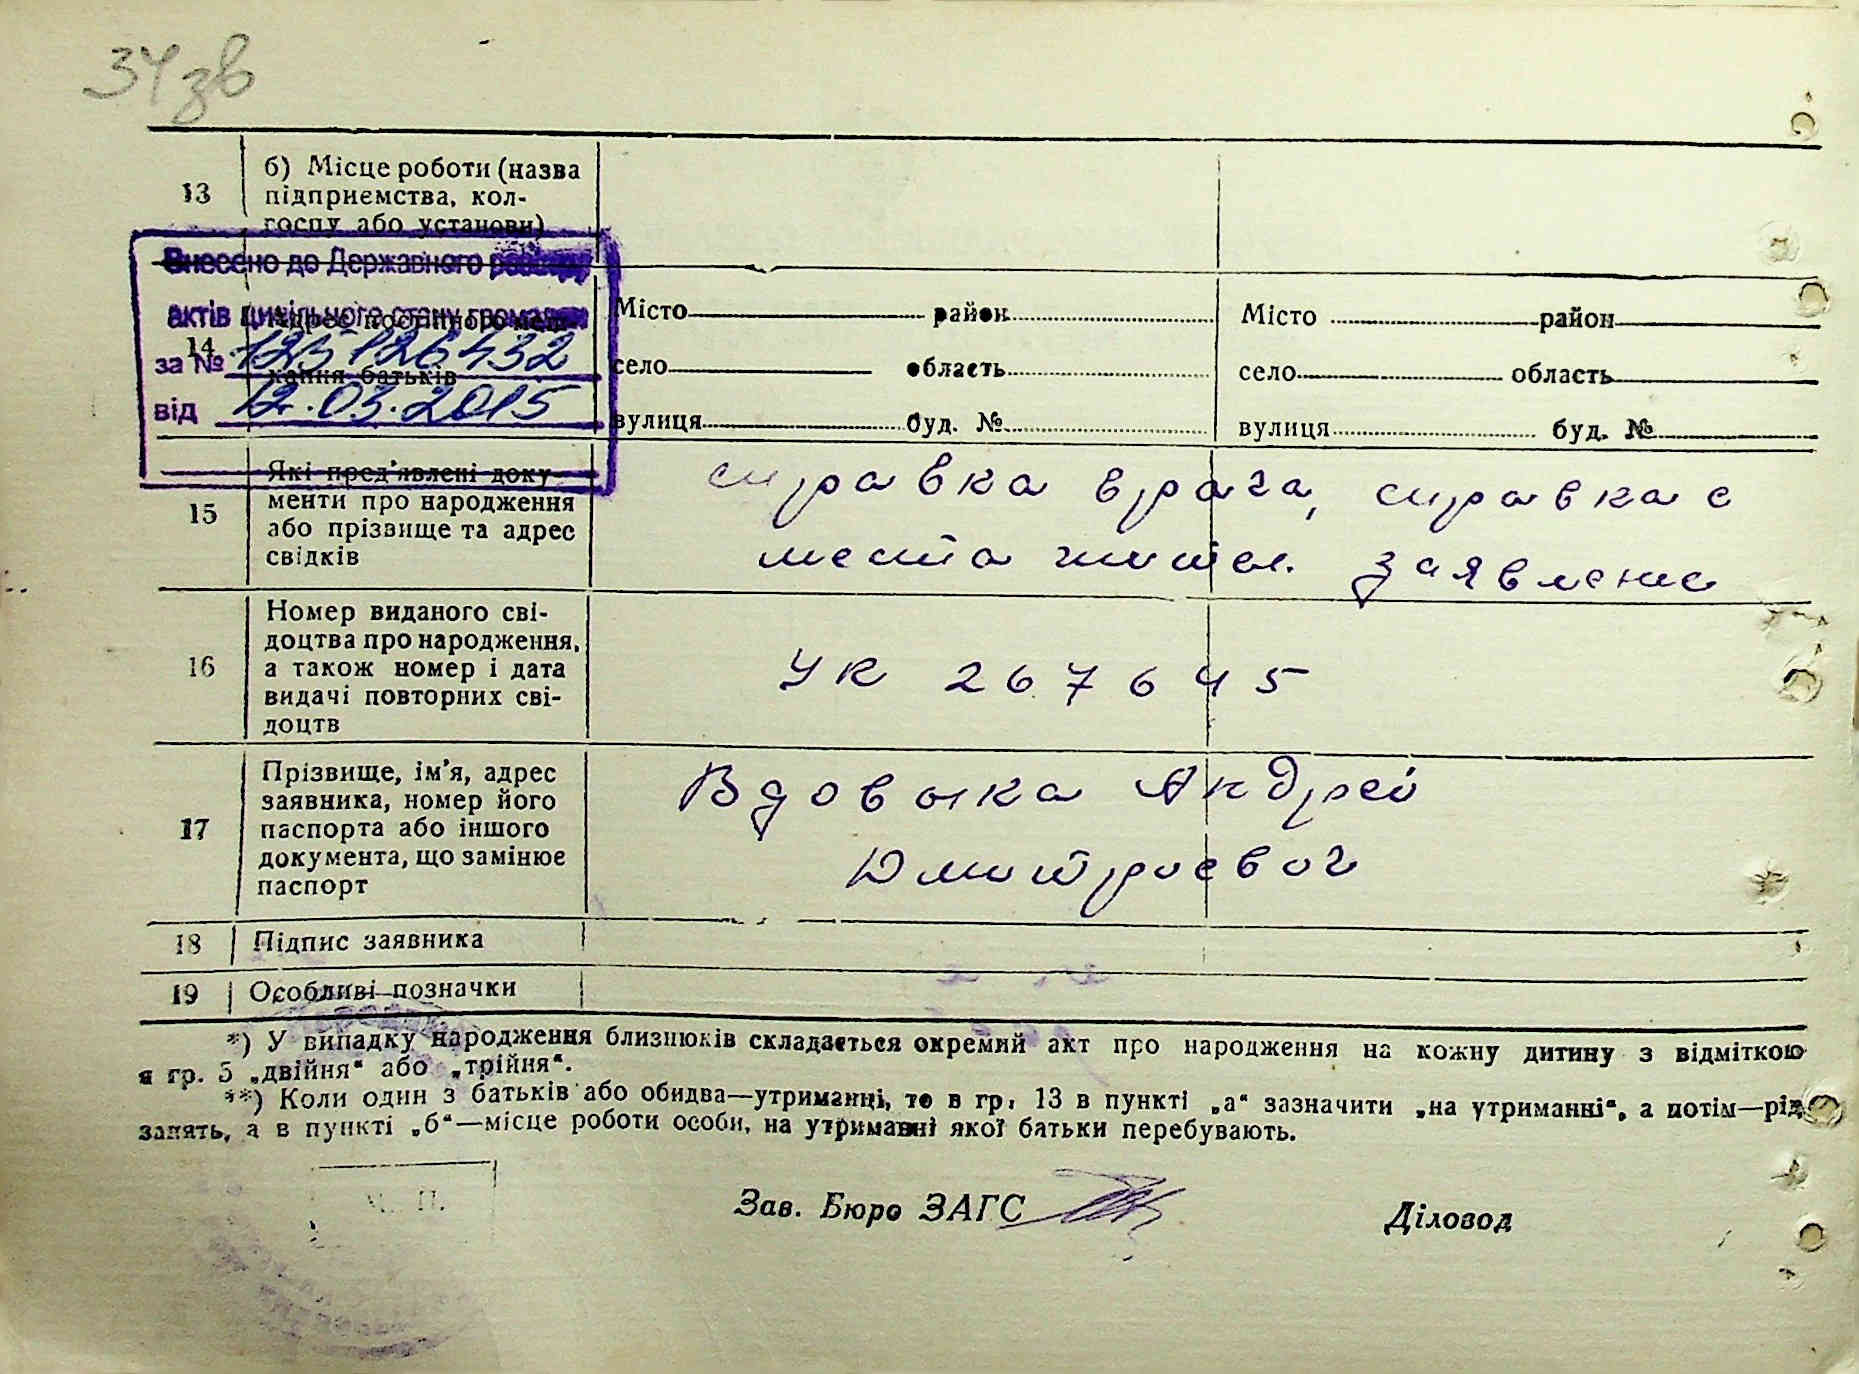 34зв
13
б) Місце роботи (назва
підприємства, кол-
госпу або установи)
Внесено до Державного
актів цивільного стану громадян
за № 125126432
від 12.03.2015
14
Адрес постійного меш-
кання батьків
Місто район
село область
вулиця буд. №
Місто район
село область
вулиця буд. №
15
Які пред'явлені доку-
менти про народження
або прізвище та адрес
свідків
справка врача, справка с
места жител. заявление
16
Номер виданого сві-
доцтва про народження,
а також номер і дата
видачі повторних сві-
доцтв
УК 267645
17
Прізвище, ім'я, адрес
заявника, номер його
паспорта або іншого
документа, що замінює
паспорт
Вдовыка Андрей
Дмитриевич
18 Підпис заявника
19 Особливі позначки
*) У випадку народження близнюків складається окремий акт про народження на кожну дитину з відміткою
я гр. 5 „двійня“ або „трійня“.
**) Коли один з батьків або обидва—утриманці, то в гр. 13 в пункті „а“ зазначити „на утриманні“, а потім—рід
занять, а в пункті „б“—місце роботи особи, на утриманні якої батьки перебувають.
М. П.
Зав. Бюро ЗАГС
Діловод